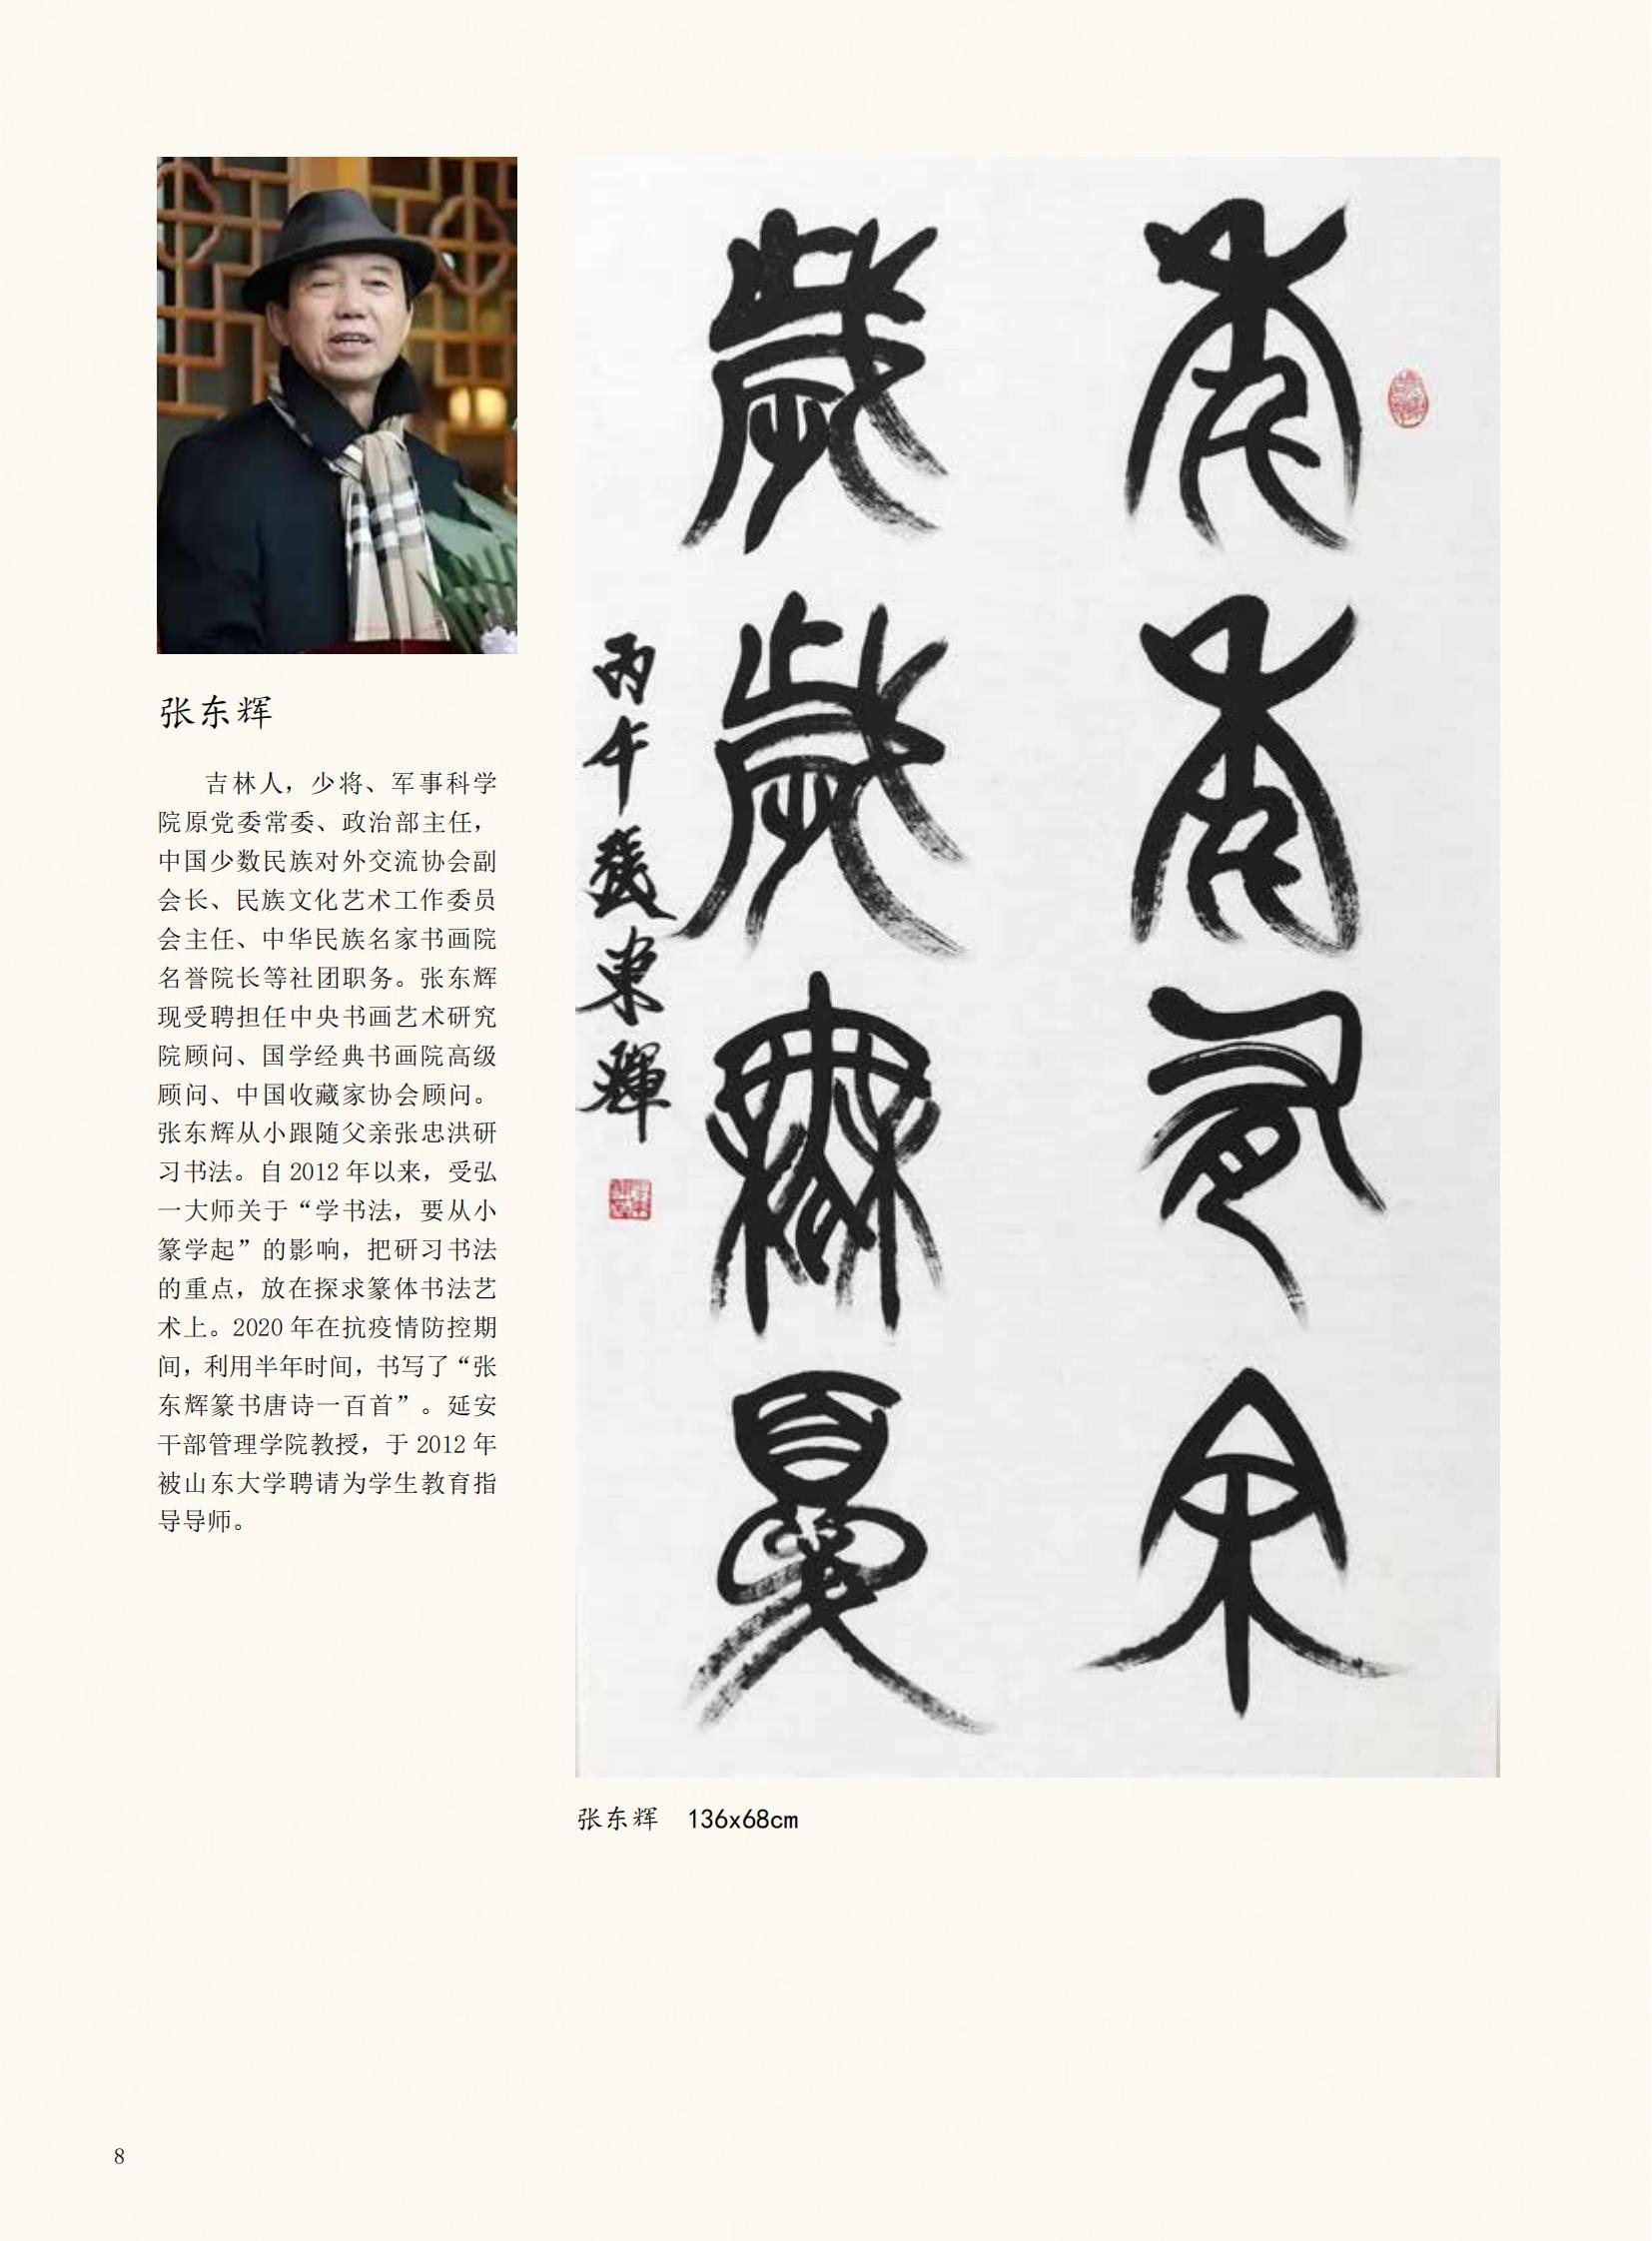 张东辉
吉林人，少将、军事科学
院原党委常委、政治部主任，
中国少数民族对外交流协会副
会长、民族文化艺术工作委员
会主任、中华民族名家书画院
名誉院长等社团职务。张东辉
现受聘担任中央书画艺术研究
院顾问、国学经典书画院高级
顾问、中国收藏家协会顾问。
张东辉从小跟随父亲张忠洪研
习书法。自 2012 年以来，受弘
一大师关于“学书法，要从小
篆学起”的影响，把研习书法
的重点，放在探求篆体书法艺
术上。2020 年在抗疫情防控期
间，利用半年时间，书写了“张
东辉篆书唐诗一百首”。延安
干部管理学院教授，于 2012 年
被山东大学聘请为学生教育指
导导师。
年年有余
歲歲無憂
丙午張東輝
张东辉 136x68cm
8